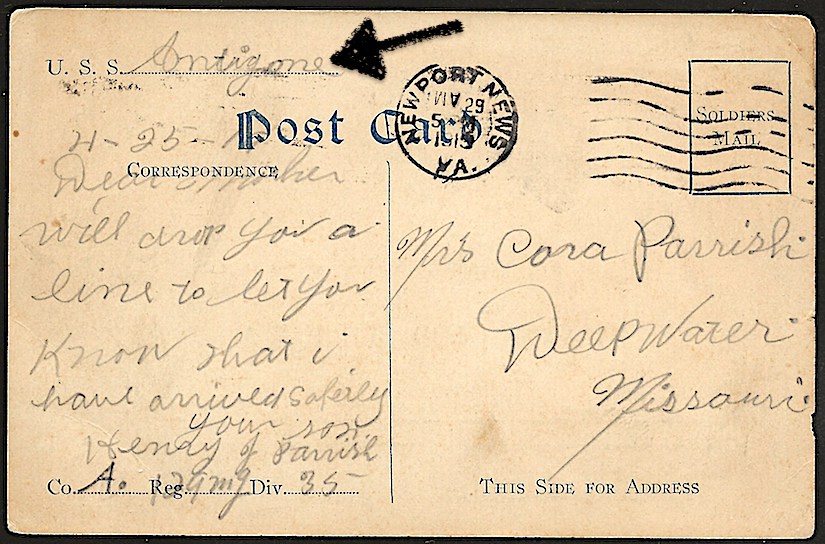 U. S. S. Antigone
Post Card
4-25-1
CORRESPONDENCE
Dear Mother
will drop you a
line to let you
Know that i
have arrived saferly
your son
Henry J Parrish
Co. A. Reg. Div. 35
NEWPORT NEWS
AM 29
VA.
SOLDIERS
MAIL
Mrs Cora Parrish
Deepwater
Missouri
THIS SIDE FOR ADDRESS